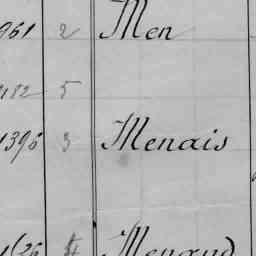 961 2 Men
5
1396 3 Menais
Menaud